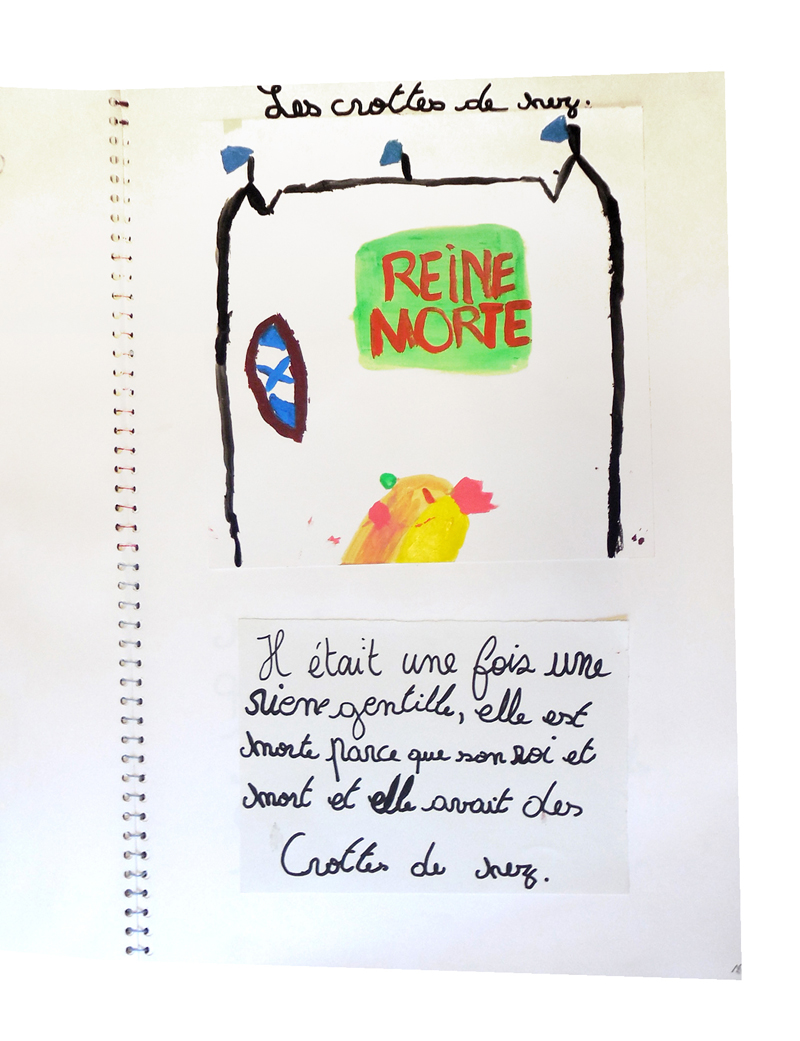 Les crottes de nez.
REINE
MORTE
Il était une fois une
riene gentille, elle est
morte parce que son roi et
mort et elle avait des
Crottes de nez.